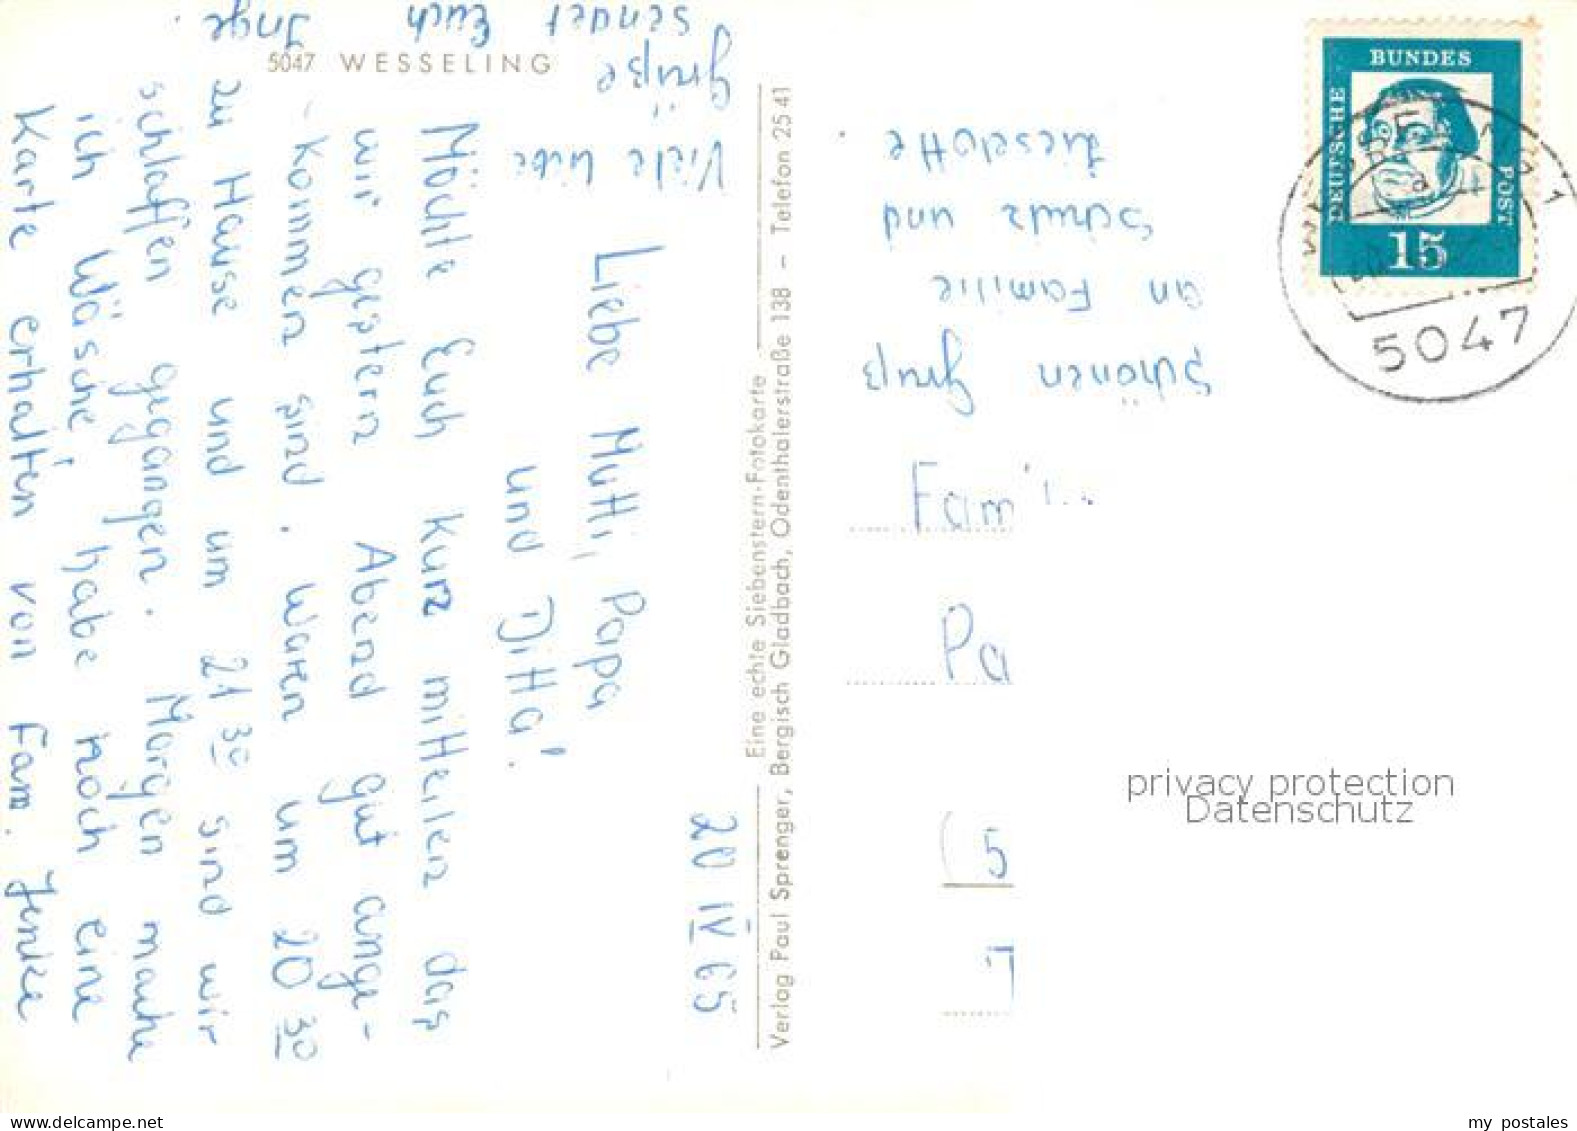 5047 WESSELING
20 IV 65
Liebe Mutti, Papa
und Ditta!
Möchte Euch kurz mitteilen daß
wir gestern Abend gut ange-
kommen sind. Waren um 20 30
zu Hause und um 21 30 sind wir
schlaffen gegangen. Morgen mache
ich Wäsche, habe noch eine
Karte erhalten von Fam. Jenke
Viele liebe
Grüße
sendet Euch Inge.
Eine echte Siebenstern-Fotokarte
Verlag Paul Sprenger, Bergisch Gladbach, Odenthalerstraße 138 – Telefon 25 41
Schönen Gruß
an Familie
Schulz und
Lieselotte
Fam
Pa
(5
DEUTSCHE
BUNDES
POST
15
WESSELING 1
a
5047
privacy protection
Datenschutz
delcampe.net
my postales